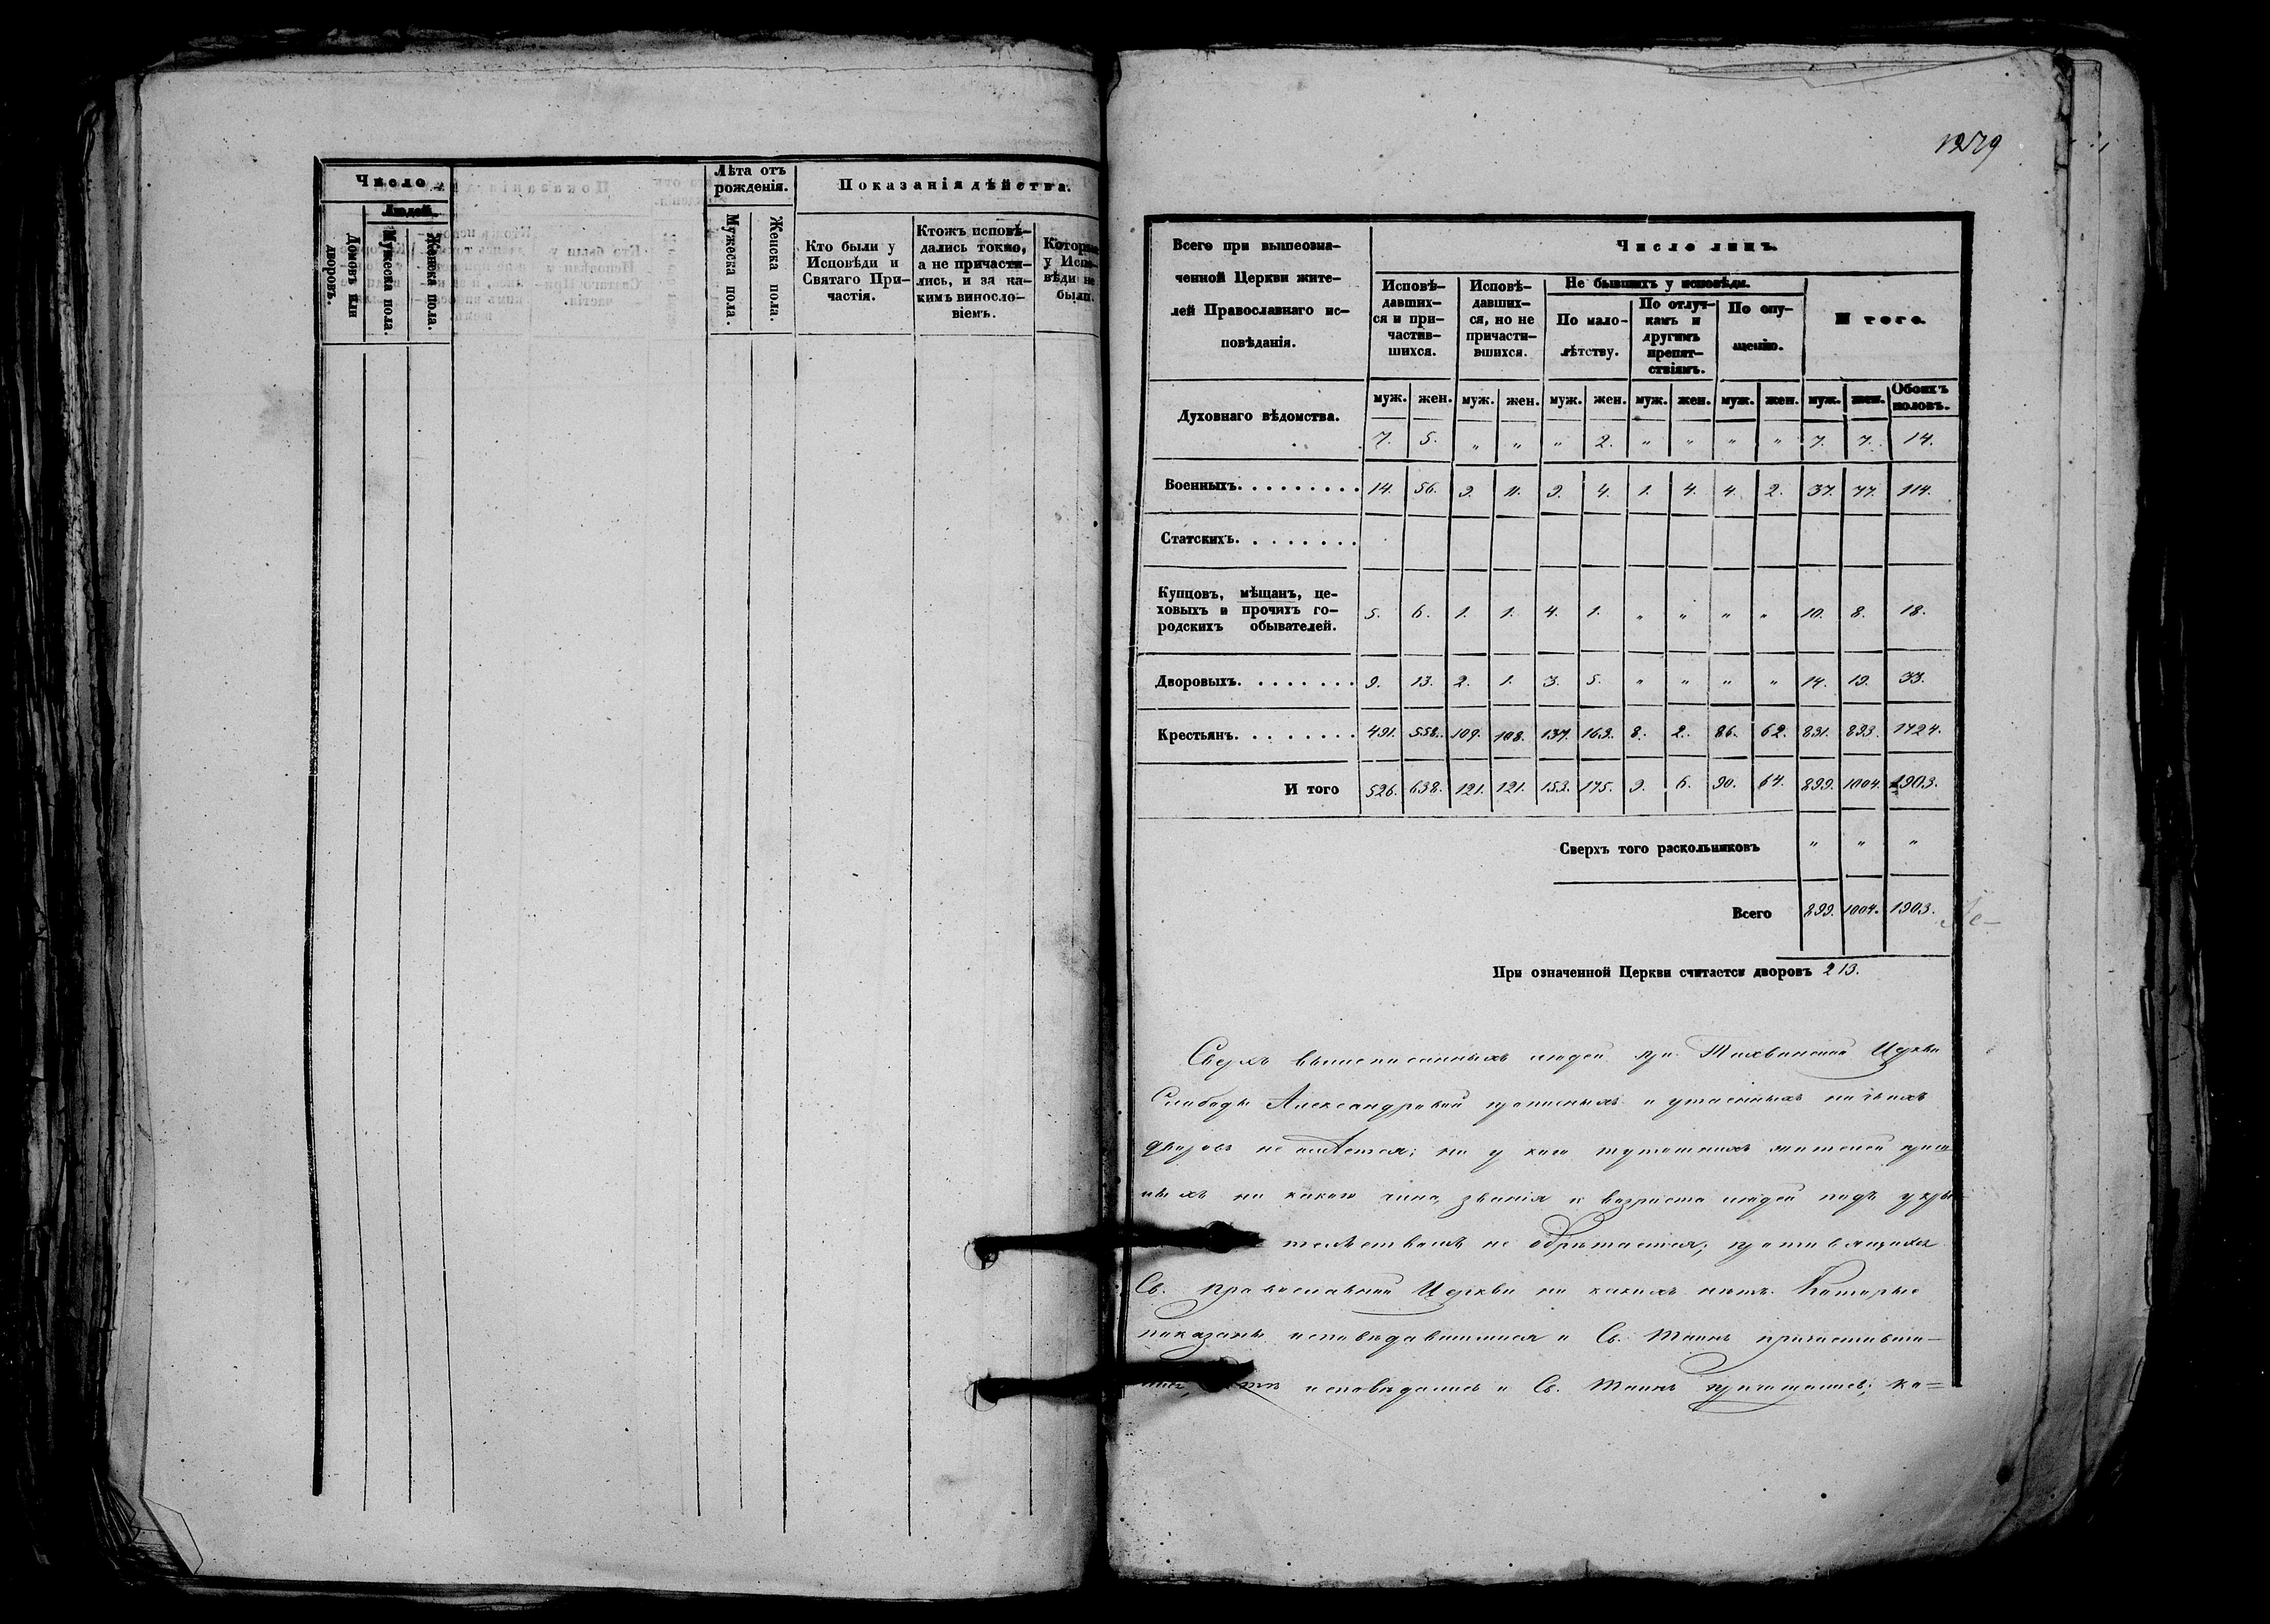 Число
Людей.
Домовъ или дворовъ.
Мужеска пола.
Женска пола.
Лѣта отъ рожденія.
Мужеска пола.
Женска пола.
Показанія дѣйства.
Кто были у
Исповѣди и
Святаго При-
частія.
Ктожъ исповѣ-
дались токмо,
а не причасти-
лись, и за ка-
кимъ винносло-
віемъ.
Которые
у Испо-
вѣди не
были.
1279
Всего при вышеозна-
ченной Церкви жите-
лей Православнаго ис-
повѣданія.
Число лицъ.
Исповѣ-
давших-
ся и при-
частив-
шихся.
Исповѣ-
давших-
ся, но не
причасти-
вшихся.
Не бывшихъ у исповѣди.
По мало-
лѣтству.
По отлуч-
камъ и
другимъ
препят-
ствіямъ.
По опу-
щенію.
И того.
муж. жен. муж. жен. муж. жен. муж. жен. муж. жен. муж. жен. Обоихъ половъ.
Духовнаго вѣдомства. 7. 5. " " " 2. " " " " 7. 7. 14.
Военныхъ. 14. 56. 9. 11. 9. 4. 1. 4. 4. 2. 37. 77. 114.
Статскихъ.
Купцовъ, мѣщанъ, це-
ховыхъ и прочихъ го-
родскихъ обывателей. 5. 6. 1. 1. 4. 1. " " " " 10. 8. 18.
Дворовыхъ. 9. 13. 2. 1. 3. 5. " " " " 14. 19. 33.
Крестьянъ. 491. 558. 109. 108. 137. 163. 8. 2. 86. 62. 831. 893. 1724.
И того 526. 638. 121. 121. 153. 175. 9. 6. 90. 64. 899. 1004. 1903.
Сверхъ того раскольниковъ " " "
Всего 899. 1004. 1903.
При означенной Церкви считается дворовъ 213.
Сверхъ вышеписанныхъ людей при Тихвинской Церкви
Слободы Александровки прописныхъ и утаенныхъ ни чьихъ
дворовъ не имѣется; ни у кого тутошнихъ жителей
ни какого чина, званія и возраста людей подъ укры
не обрѣтается; противящихся
Св. Православной Церкви ни какихъ нѣтъ. Которые
показаны исповѣдавшимися и Св. Таинъ причастивши-
исповѣдались и Св. Таинъ причащались; ко=